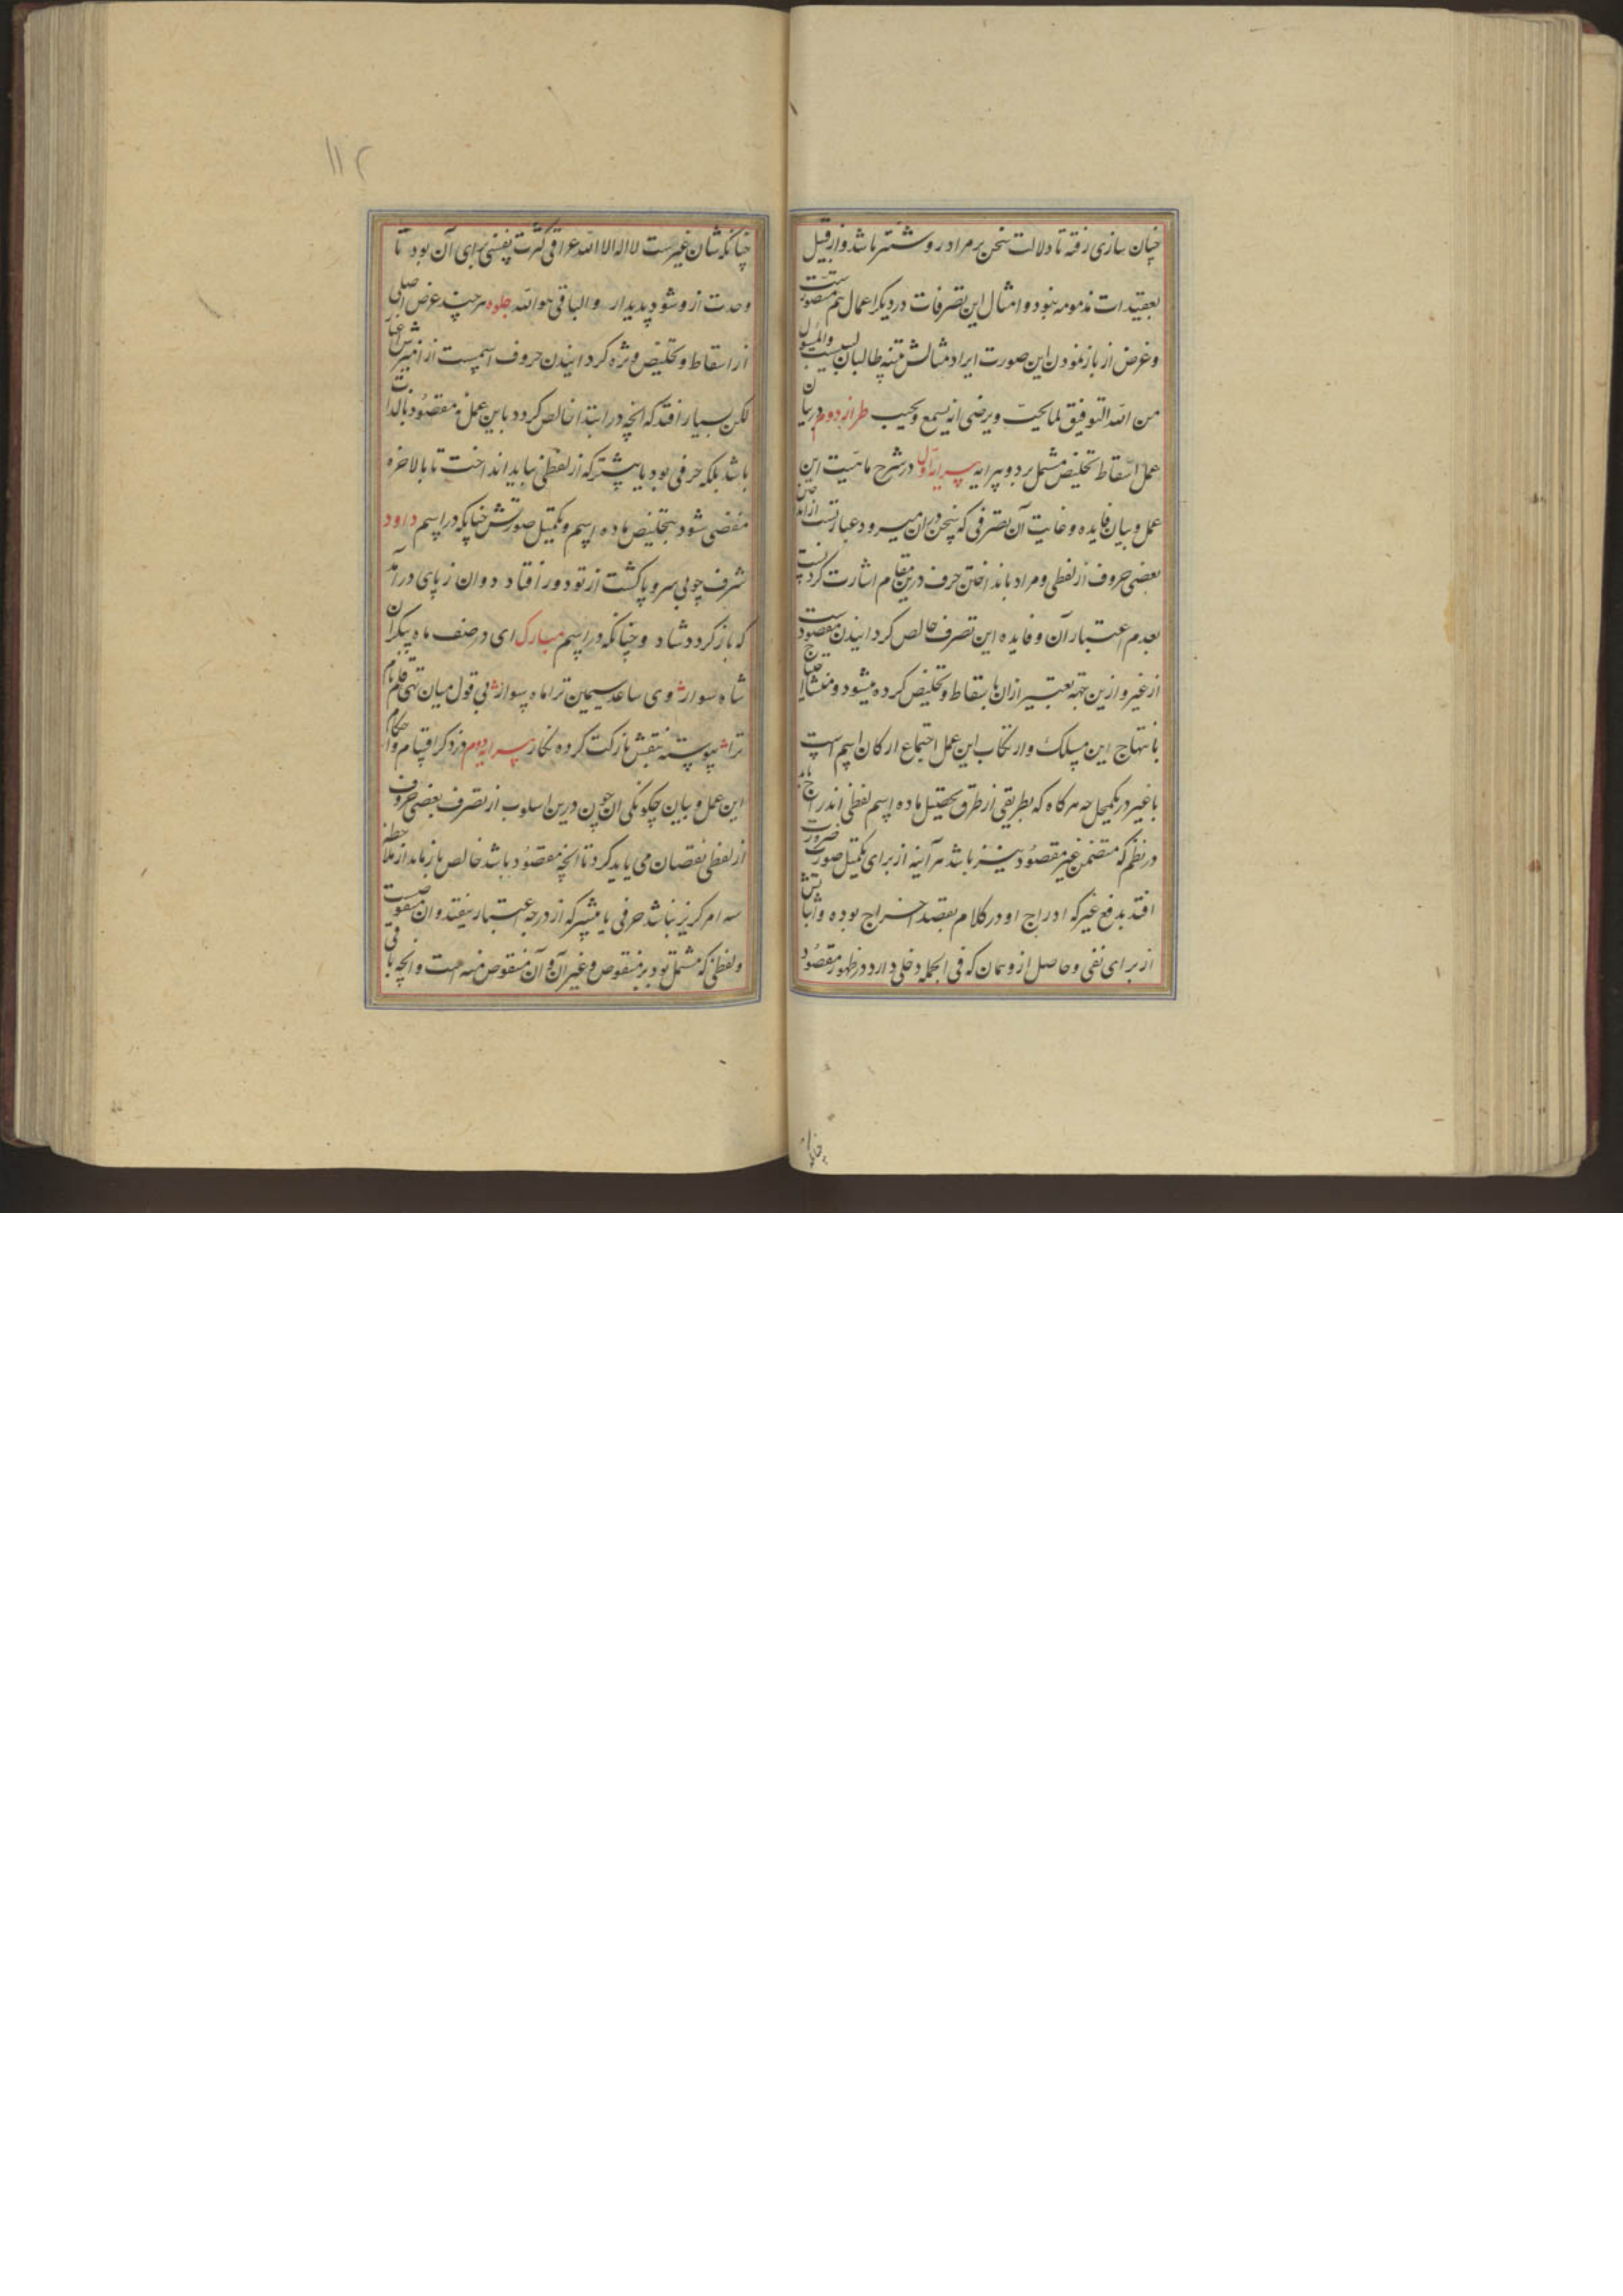 چنان سازی رفته تا دلالت سخن بر مراد روشنتر باشد و از قبیل
تعقیدات مذمومه نبود و امثال این تصرفات در دیگر اعمال هم متصورست
و غرض از باز نمودن این صورت ایراد مثالش تنبه طالبان والمسول
من الله التوفیق لما یحب و یرضی انه یسمع و یجیب طراز دوم در بیان
عمل اسقاط و تخلیص مشتمل بر دو پیرایه پیرایه اول در شرح ماهیت این
عمل و بیان فایده و غایت آن تصرفی که سخن در ان میرود عبارتست از انداختن
بعضی حروف از لفظی و مراد بانداختن حرف درین مقام اشارت کردنست
بعدم اعتبار آن و فایده این تصرف خالص کردانیدن مقصودست
از غیر و ازین جهة تعبیر ازان باسقاط و تخلیص کرده میشود و منشا احتیاج
بانتهاج این مسلک و ارتکاب این عمل اجتماع ارکان اسم است
با غیر در یکمحل چه هرکاه که بطریقی از طرق تحصیل ماده اسم لفظی اندراج یابد
در نظم که متضمن غیر مقصود نیز باشد هر آینه از برای تکمیل صورت ضرورت
افتد بدفع غیر که ادراج او در کلام بقصد اخراج بوده و اثباتش
از برای نفی و حاصل ازو همان که فی الجمله دخلی دارد در ظهور مقصود
۱۱۲
چنانکه شان غیرست لا اله الا الله عراقی کثرت نفسی برای آن بود تا
وحدت ازو شود پدیدار و الباقی هو الله جلوه هر چند غرض اصلی
از اسقاط و تخلیص ویژه کردانیدن حروف اسمست از
لکن بسیار افتد که انچه در ابتدا خالص کردد باین عمل نه مقصود بالذات
باشد بلکه حرفی بود یا بیشتر که از لفظی بباید انداخت تا بالاخره
مفضی شود بتخلیص ماده اسم و تکمیل صورتش چنانکه در اسم داود
شرف چو بی سر و پا کشت از تو دور افتاد دوان ز پای در آمد
که باز کردد شاد و چنانکه در اسم مبارک ای در صف ماه پیکران
شاه سوار وی ساعد سیمین ترا ماه سوار بی قول میان تهی قلم نام
ترا پیوسته بنقش بازکت کرده نکار پیرایه دوم در ذکر اقسام و احکام
این عمل و بیان چکونکی ان چون درین اسلوب از تصرف بعضی حروف
از لفظی نقصان می باید کرد تا انچه مقصود باشد خالص باز ماند از ملاحظه
سه امر کریز نباشد حرفی یا بیشتر که از درجه اعتبار بیفتد و ان منقوصست
و لفظی که مشتمل بود بر منقوص و غیر آن و آن منقوص منه است و انچه باقی